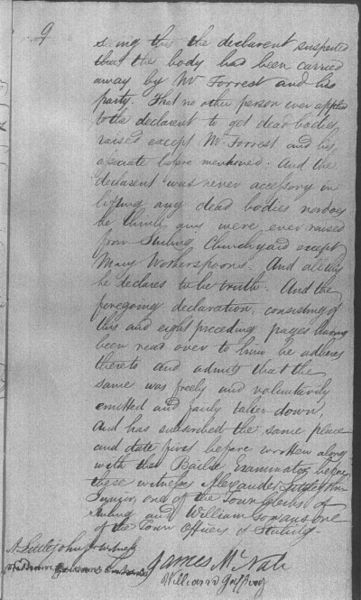 9
seing this the declarent suspected
that the body had been carried
away by Mr Forrest and his
party. That no other person ever applied
to the declarent to get dead bodies
raised except Mr Forrest and his
associate before mentioned. And the
declarent was never accessory in
lifting any dead bodies nor does
he think any were ever raised
from Stirling Churchyard except
Mary Wotherspoons. And all this
he declares to be truth. And the
foregoing declaration, consisting of
this and eight preceding pages having
been read over to him he adheres
thereto and admits that the
same was freely and voluntarily
emitted and fairly taken down,
and has subscribed the same place
and date first before written along
with the Bailie Examinator before
these witnesses Alexander Littlejohn
Junior, one of the Town Clerks of
Stirling and William one
of the Town Officers of Stirling
A. Littlejohn Junr witness
James McNab
William